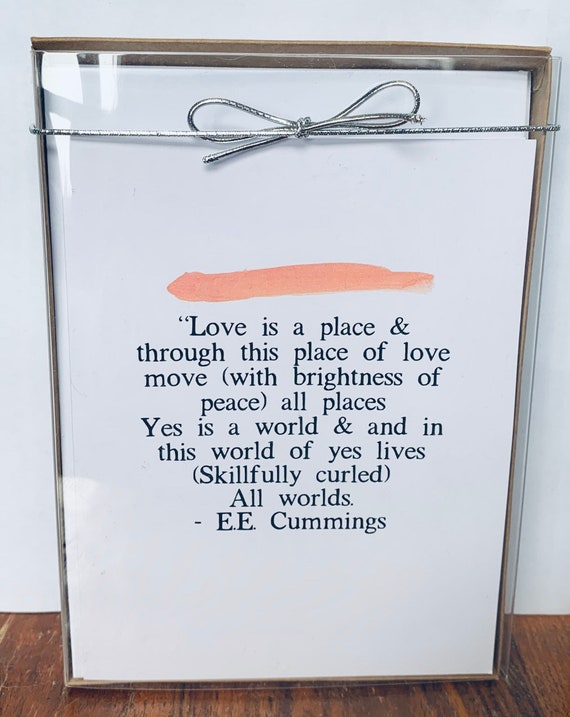 “Love is a place &
through this place of love
move (with brightness of
peace) all places
Yes is a world & and in
this world of yes lives
(Skillfully curled)
All worlds.
- E.E. Cummings